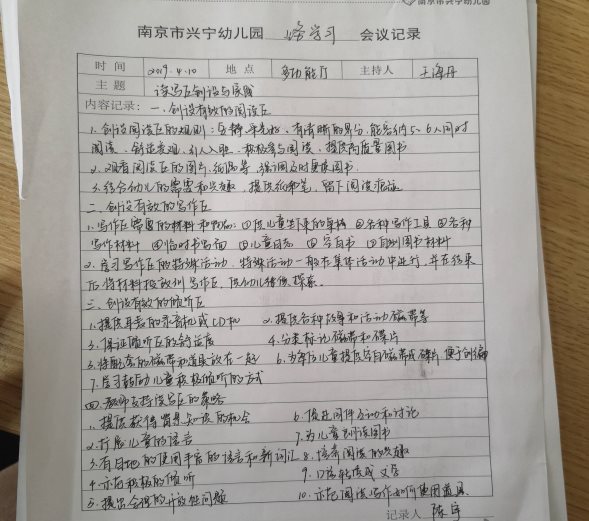 南京市兴宁幼儿园
南京市兴宁幼儿园 业务学习 会议记录
时间 2019.4.10 地点 多功能厅 主持人 王海丹
主题 读写区创设与展践
内容记录：一、创设有效的阅读区
1. 创设阅读区的规则：安静、采光好、有清晰的界分、能容纳5、6人同时
阅读、舒适美观、引人入胜、积极参与阅读、提供高质量图书
2. 观看阅读区的图片、纸偶等，强调及时更换图书
3. 结合幼儿的需要和兴趣，提供纸和笔，留下阅读痕迹
二、创设有效的写作区
1. 写作区需要的材料和物品：①供儿童坐下来的桌椅 ②各种写作工具 ③各种
写作材料 ④临时书写面 ⑤儿童日志 ⑥字母书 ⑦自制图书材料
2. 学习写作区的特殊活动，特殊活动一般在集体活动中进行，并在结束
后将材料投放到写作区，供幼儿继续探索。
三、创设有效的倾听区
1. 提供耳套的录音机或CD机 2. 提供各种故事和活动磁带等
3. 保证倾听区的舒适度 4. 分类标记磁带和碟片
5. 将配套的磁带和道具放在一起 6. 为每位儿童提供空白磁带或碟片，便于创编
7. 学习鼓励儿童积极倾听的方式
四、教师支持读写区的策略
1. 提供获得背景知识的机会 6. 促进同伴互动和讨论
2. 扩展儿童的语言 7. 为儿童朗读图书
3. 有目地的使用丰富的语言和新词汇 8. 培养阅读的兴趣
4. 示范积极的倾听 9. 口语转换成文学
5. 提出合理的开放性问题 10. 示范阅读写作如何使用道具
记录人 陈